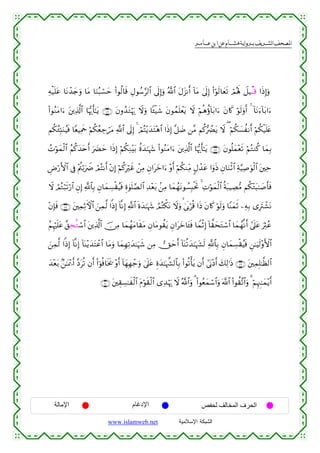 المصحف الشريف برواية هشام عن ابن عامر
وَإِذَا قِيلَ لَهُمْ تَعَالَوْا۟ إِلَىٰ مَآ أَنزَلَ ٱللَّهُ وَإِلَى ٱلرَّسُولِ قَالُوا۟ حَسْبُنَا مَا وَجَدْنَا عَلَيْهِ
ءَابَآءَنَآ أَوَلَوْ كَانَ ءَابَآؤُهُمْ لَا يَعْلَمُونَ شَيْـًٔا وَلَا يَهْتَدُونَ يَٰٓأَيُّهَا ٱلَّذِينَ ءَامَنُوا۟
عَلَيْكُمْ أَنفُسَكُمْ لَا يَضُرُّكُم مَّن ضَلَّ إِذَا ٱهْتَدَيْتُمْ إِلَى ٱللَّهِ مَرْجِعُكُمْ جَمِيعًا فَيُنَبِّئُكُم
بِمَا كُنتُمْ تَعْمَلُونَ يَٰٓأَيُّهَا ٱلَّذِينَ ءَامَنُوا۟ شَهَٰدَةُ بَيْنِكُمْ إِذَا حَضَرَ أَحَدَكُمُ ٱلْمَوْتُ
حِينَ ٱلْوَصِيَّةِ ٱثْنَانِ ذَوَا عَدْلٍ مِّنكُمْ أَوْ ءَاخَرَانِ مِنْ غَيْرِكُمْ إِنْ أَنتُمْ ضَرَبْتُمْ فِى ٱلْأَرْضِ
فَأَصَٰبَتْكُم مُّصِيبَةُ ٱلْمَوْتِ تَحْبِسُونَهُمَا مِنۢ بَعْدِ ٱلصَّلَوٰةِ فَيُقْسِمَانِ بِٱللَّهِ إِنِ ٱرْتَبْتُمْ لَا
نَشْتَرِى بِهِۦ ثَمَنًا وَلَوْ كَانَ ذَا قُرْبَىٰ وَلَا نَكْتُمُ شَهَٰدَةَ ٱللَّهِ إِنَّآ إِذًا لَّمِنَ ٱلْـَٔاثِمِينَ فَإِنْ
عُثِرَ عَلَىٰٓ أَنَّهُمَا ٱسْتَحَقَّآ إِثْمًا فَـَٔاخَرَانِ يَقُومَانِ مَقَامَهُمَا مِنَ ٱلَّذِينَ ٱسْتُحِقَّ عَلَيْهِمُ
ٱلْأَوْلَيَٰنِ فَيُقْسِمَانِ بِٱللَّهِ لَشَهَٰدَتُنَآ أَحَقُّ مِن شَهَٰدَتِهِمَا وَمَا ٱعْتَدَيْنَآ إِنَّآ إِذًا لَّمِنَ
ٱلظَّٰلِمِينَ ذَٰلِكَ أَدْنَىٰٓ أَن يَأْتُوا۟ بِٱلشَّهَٰدَةِ عَلَىٰ وَجْهِهَآ أَوْ يَخَافُوٓا۟ أَن تُرَدَّ أَيْمَٰنٌۢ بَعْدَ
أَيْمَٰنِهِمْ وَٱتَّقُوا۟ ٱللَّهَ وَٱسْمَعُوا۟ وَٱللَّهُ لَا يَهْدِى ٱلْقَوْمَ ٱلْفَٰسِقِينَ
الحرف المخالف لحفص الإدغام الإمالة
الشبكة الإسلامية www.islamweb.net